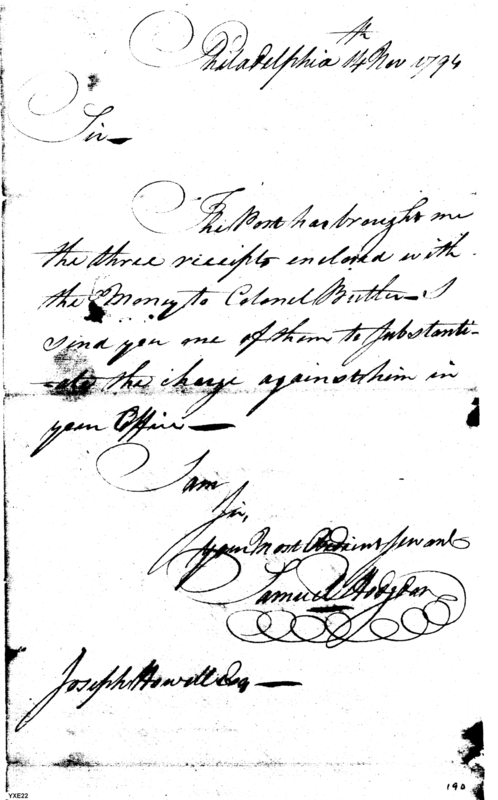 Philadelphia 14th Nov 1794
Sir—
The Post has brought me
the three receipts enclosed with
the Money to Colonel Butler— I
send you one of them to Substanti-
-ate the charge against him in
your Office—
I am
Sir,
your most Obedient Servant
Samuel Hodgdon
Joseph Howell Esq—
YXE22
190